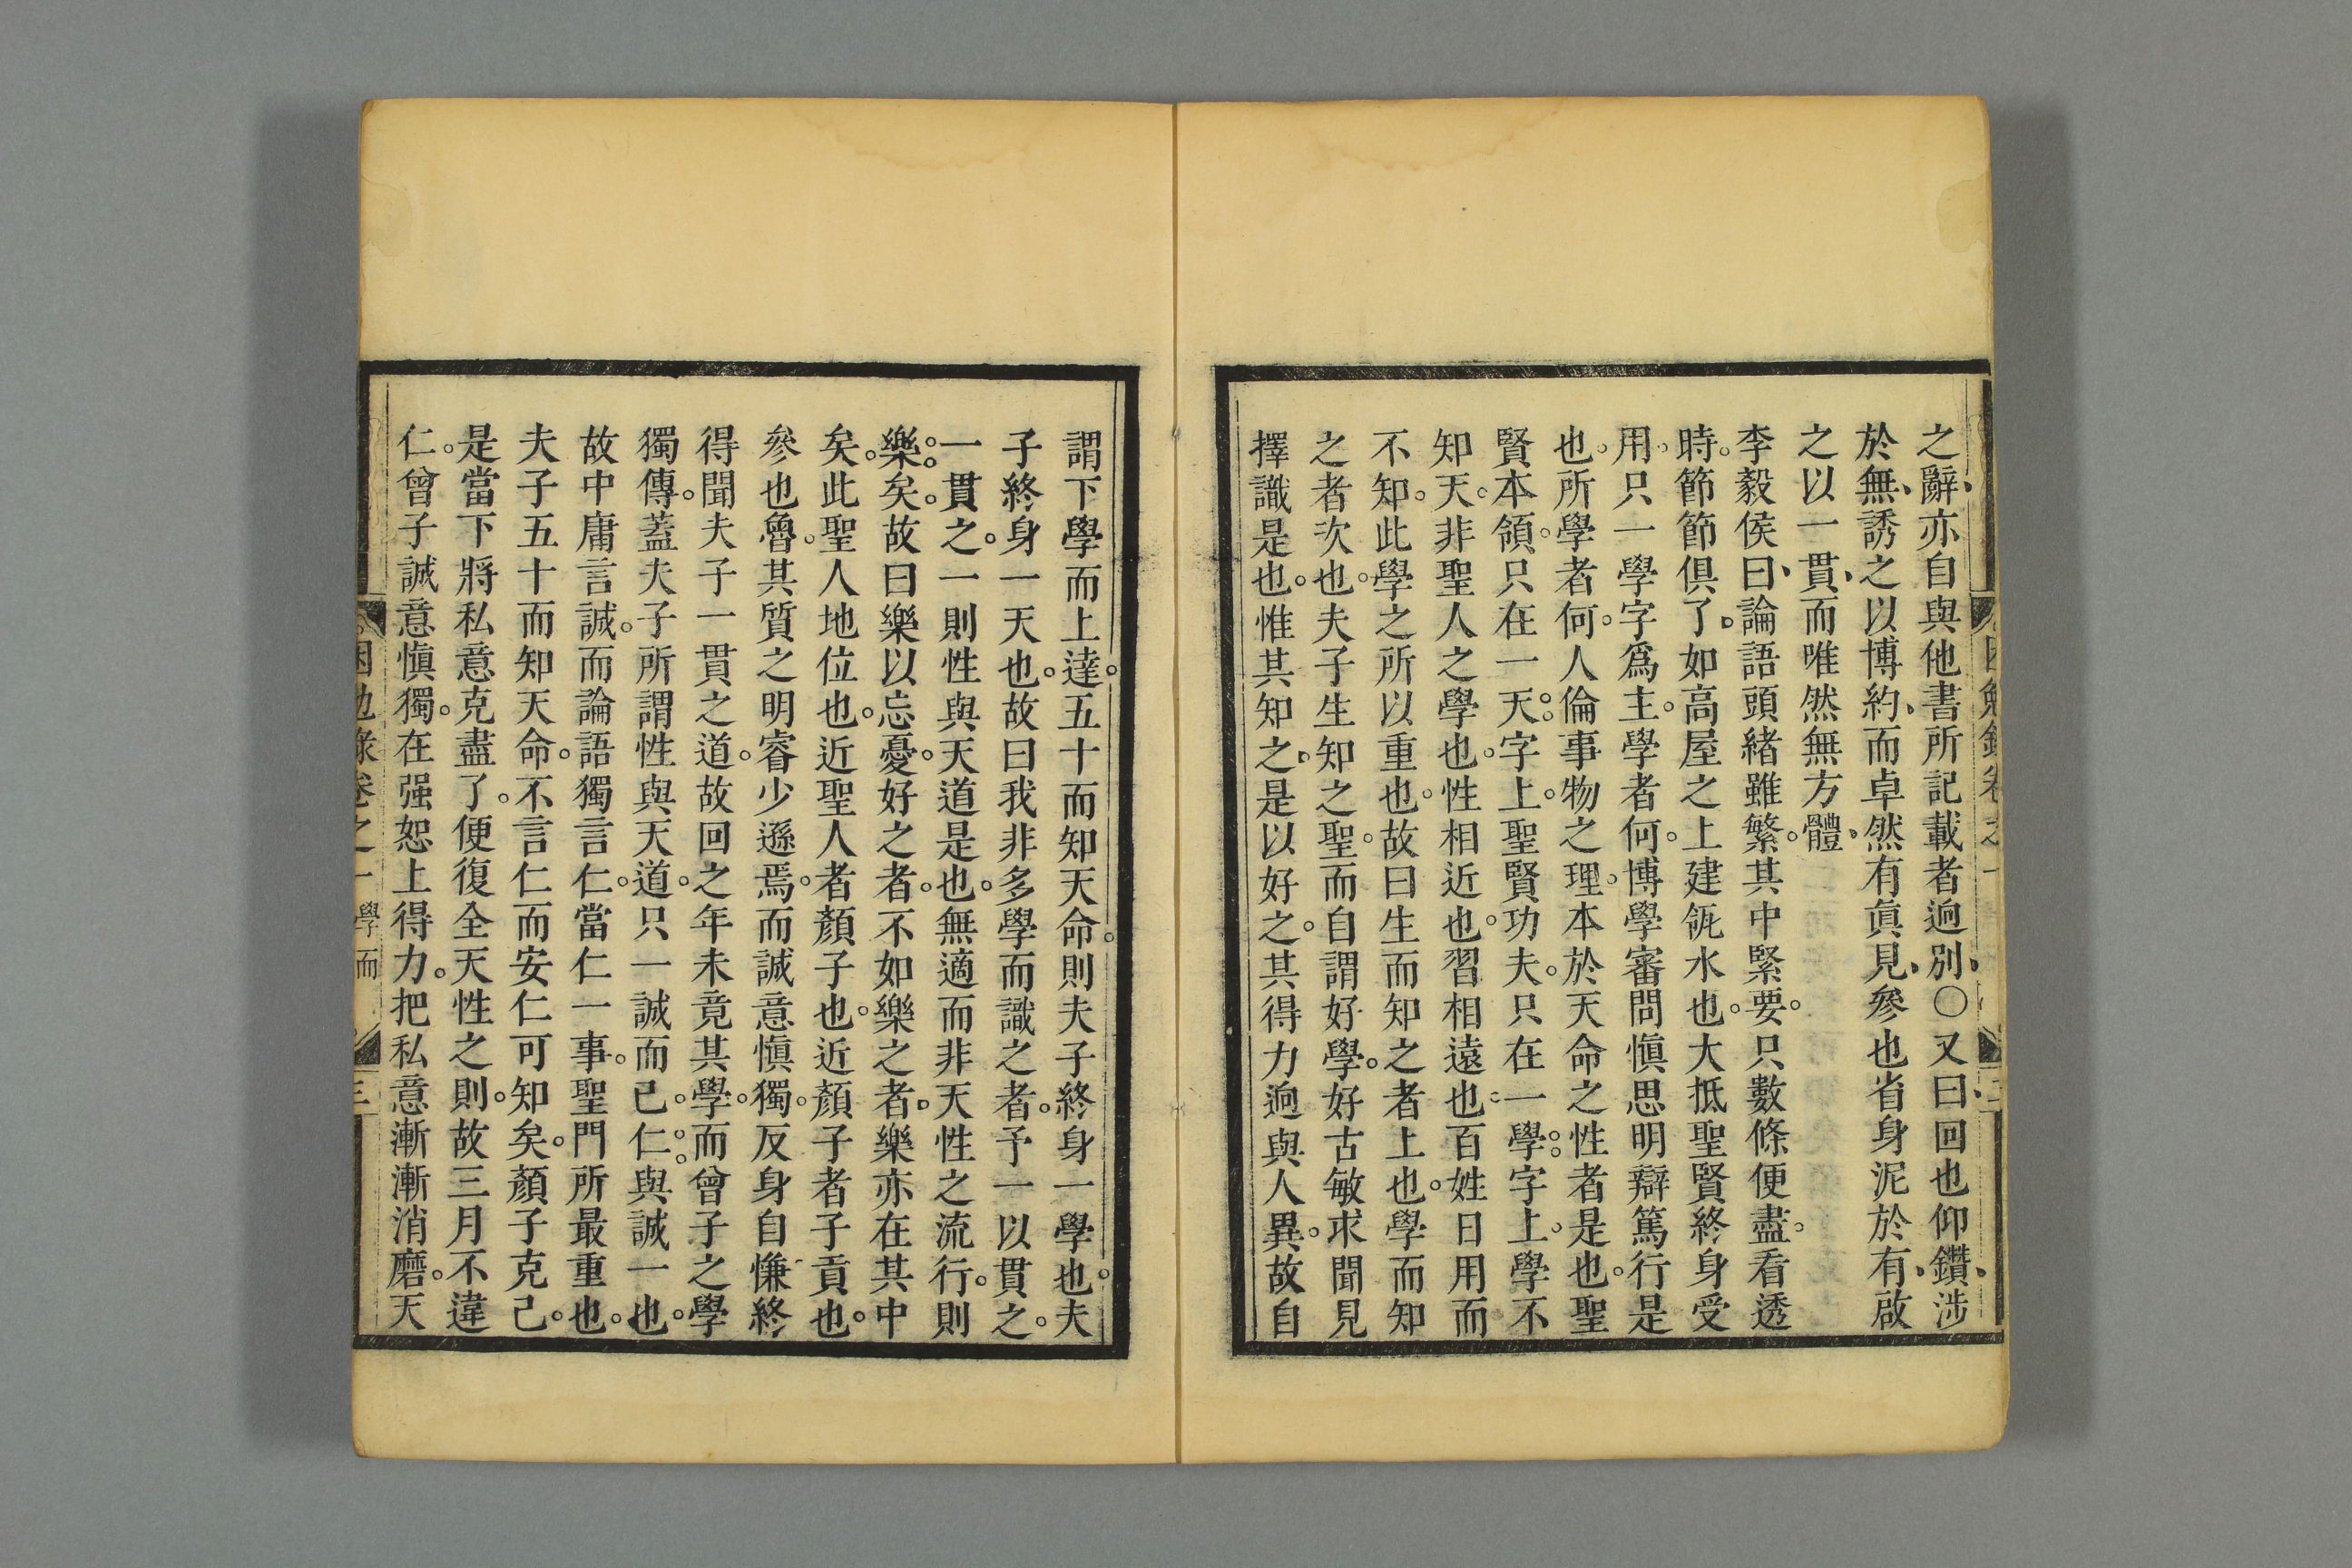 之辭亦自與他書所記載者逈別〇又曰回也仰鑽涉
於無誘之以博約而卓然有眞見參也省身泥於有啟
之以一貫而唯然無方體
李毅侯曰論語頭緒雖繁其中緊要只數條便盡看透
時節節俱了如高屋之上建瓴水也大抵聖賢終身受
用只一學字爲主學者何博學審問愼思明辯篤行是
也所學者何人倫事物之理本於天命之性者是也聖
賢本領只在一天字上聖賢功夫只在一學字上學不
知天非聖人之學也性相近也習相遠也百姓日用而
不知此學之所以重也故曰生而知之者上也學而知
之者次也夫子生知之聖而自謂好學好古敏求聞見
擇識是也惟其知之是以好之其得力逈與人異故自
謂下學而上達五十而知天命則夫子終身一學也夫
子終身一天也故曰我非多學而識之者予一以貫之
一貫之一則性與天道是也無適而非天性之流行則
樂矣故曰樂以忘憂好之者不如樂之者樂亦在其中
矣此聖人地位也近聖人者顏子也近顏子者子貢也
參也魯其質之明睿少遜焉而誠意愼獨反身自慊終
得聞夫子一貫之道故回之年未竟其學而曾子之學
獨傳蓋夫子所謂性與天道只一誠而已仁與誠一也
故中庸言誠而論語獨言仁當仁一事聖門所最重也
夫子五十而知天命不言仁而安仁可知矣顏子克己
是當下將私意克盡了便復全天性之則故三月不違
仁曾子誠意愼獨在强恕上得力把私意漸漸消磨天
困勉錄卷之一 學而 三